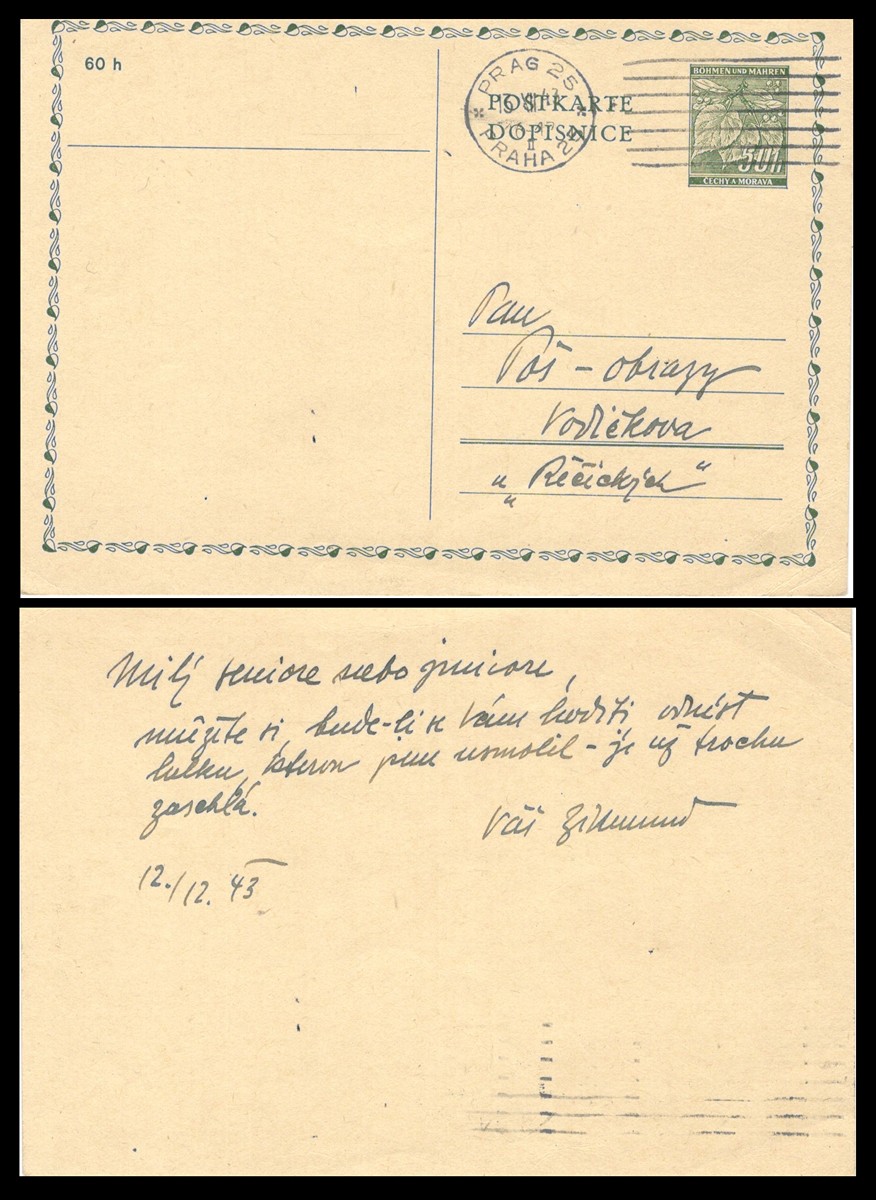 60 h
PRAG 25
PRAHA 25
POSTKARTE
DOPISNICE
BÖHMEN UND MÄHREN
50h
ČECHY A MORAVA
Pan
Poš - obrazy
Vodičkova
„ Řečických "
Milý seniore nebo juniore,
můžete si, bude-li se Vám hoditi odnést
lulku, kterou jsem usmolil - je už trochu
zaschlá.
Váš Zikmund
12./12. 43